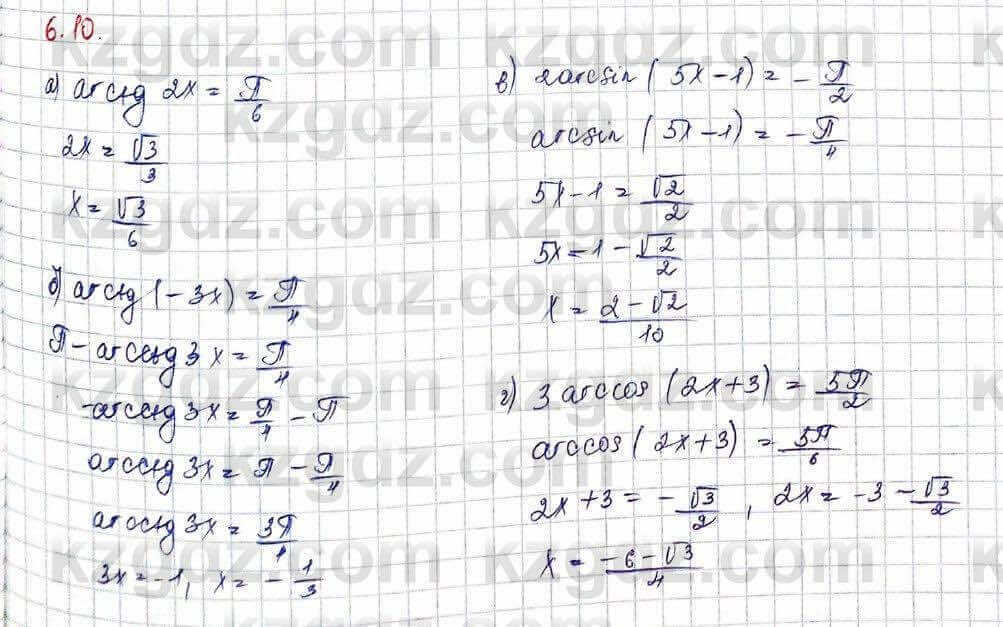 6.10.
а) arctg 2x = π/6
2x = √3/3
x = √3/6
б) arcctg (-3x) = π/4
π - arcctg 3x = π/4
-arcctg 3x = π/4 - π
arcctg 3x = π - π/4
arcctg 3x = 3π/4
3x = -1, x = -1/3
в) 2arcsin (5x - 1) = -π/2
arcsin (5x - 1) = -π/4
5x - 1 = √2/2
5x = 1 - √2/2
x = (2 - √2)/10
г) 3 arccos (2x + 3) = 5π/2
arccos (2x + 3) = 5π/6
2x + 3 = -√3/2, 2x = -3 - √3/2
x = (-6 - √3)/4
kzgdz.com kzgdz.com
kzgdz.com kzgdz.com
kzgdz.com kzgdz.com
kzgdz.com kzgdz.com
kzgdz.com kzgdz.com
kzgdz.com kzgdz.com
kzgdz.com kzgdz.com